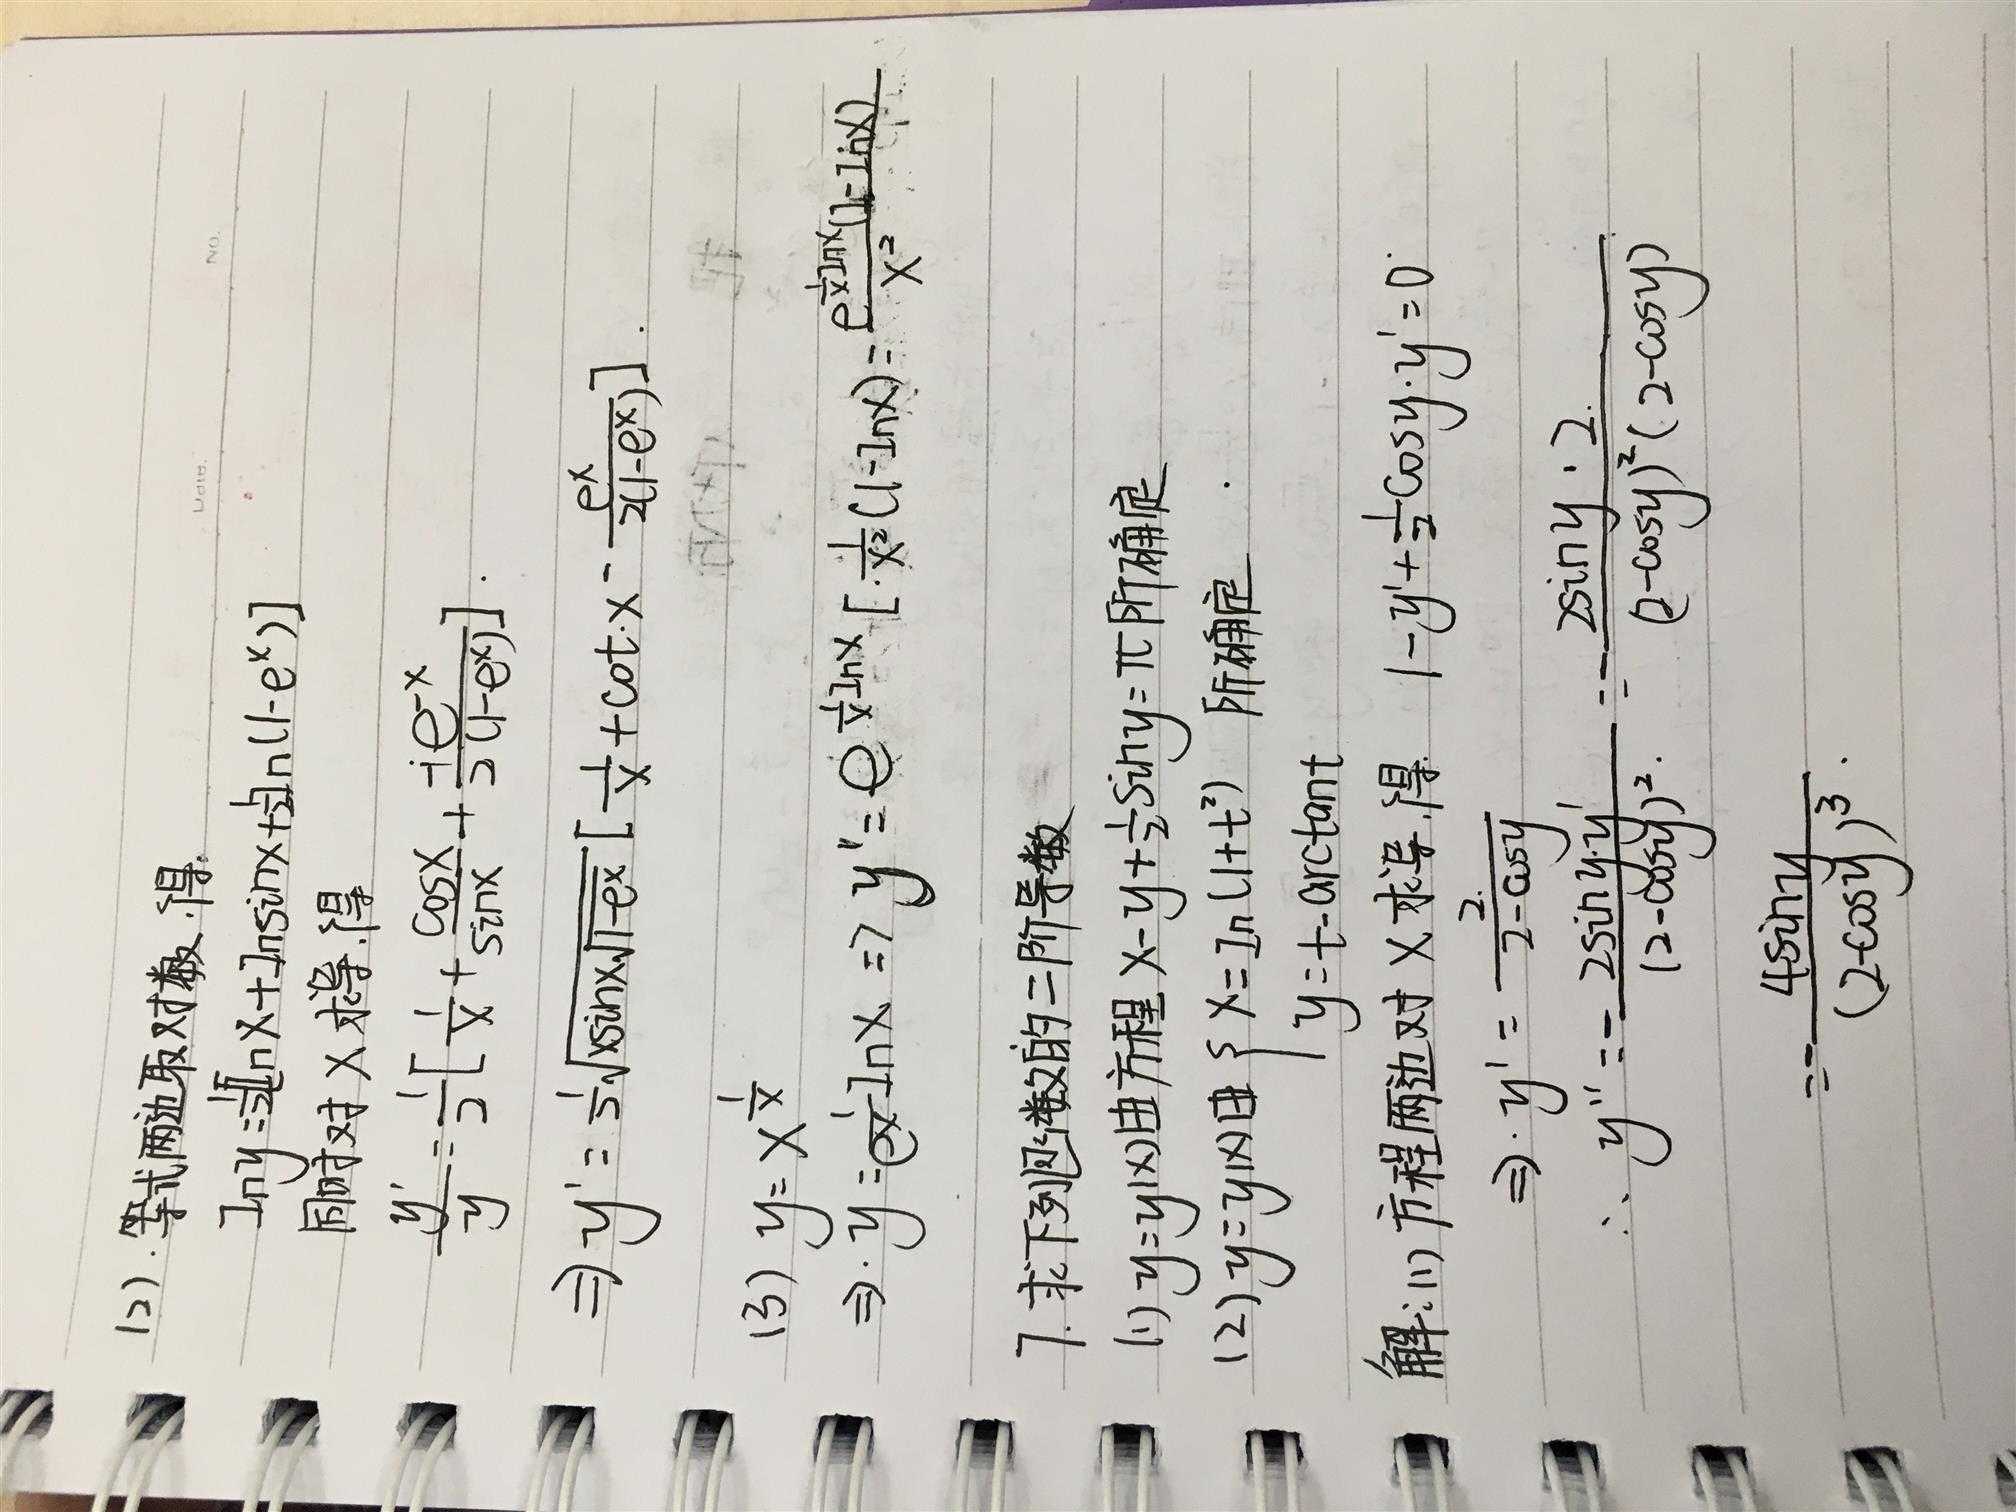 NO.
Date.
(2). 等式两边取对数,得.
lny=½[lnx+lnsinx+½ln(1-eˣ)]
同时对 x 求导,得
y'/y = 1/2[1/x + cosx/sinx + -e^-x/2(1-eˣ)].
⇒ y' = 1/2√(xsinx√(1-eˣ)) [1/x + cot·x - eˣ/2(1-eˣ)].
(3) y = x^(1/x)
⇒. y = e^(1/x)lnx => y'' = e^(1/x lnx) [1/x²(1-lnx) = e^(1/x lnx)(1-lnx)/x²
7. 求下列函数的二阶导数
(1) y=y(x)由方程 x-y+½siny=π所确定
(2) y=y(x)由 { x=ln(1+t²) 所确定.
y=t-arctant
解:(1) 方程两边对 x 求导,得 1-y'+½cosy·y'=0.
⇒. y' = 2/(2-cosy)
∴ y'' = - 2siny·y'/(2-cosy)². = - 2siny·2./(2-cosy)²(2-cosy)
= - 4siny/(2-cosy)³.